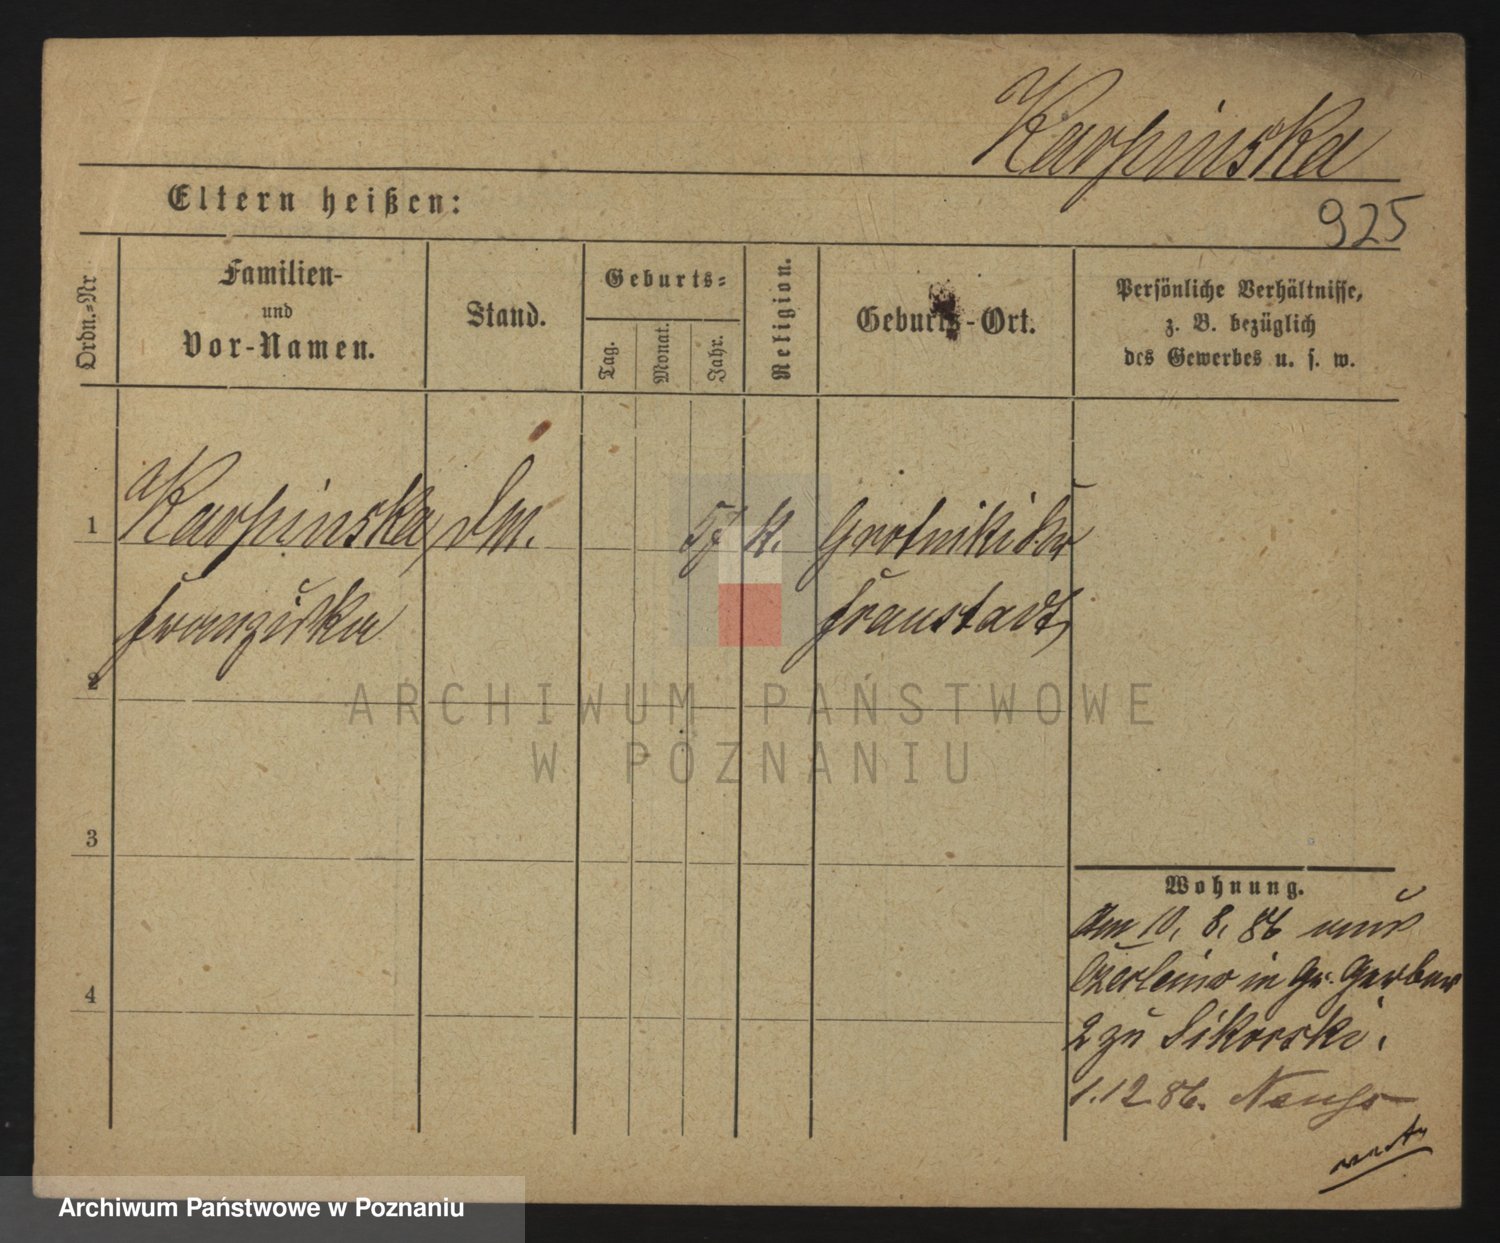 Karpinska
Eltern heißen:
925
Ordn.-Nr
Familien-
und
Vor-Namen.
Stand.
Geburts-
Tag.
Monat.
Jahr.
Religion.
Geburts-Ort.
Persönliche Verhältnisse,
z. B. bezüglich
des Gewerbes u. s. w.
1
Karpinska, Dm. 57 K. Grotniki Kr
Franziska Fraustadt
2
3
4
Wohnung.
Am 10. 8. 86 aus
in Gr. Gerber
2 zu Sikorski.
1.12.86.
ARCHIWUM PAŃSTWOWE
W POZNANIU
Archiwum Państwowe w Poznaniu